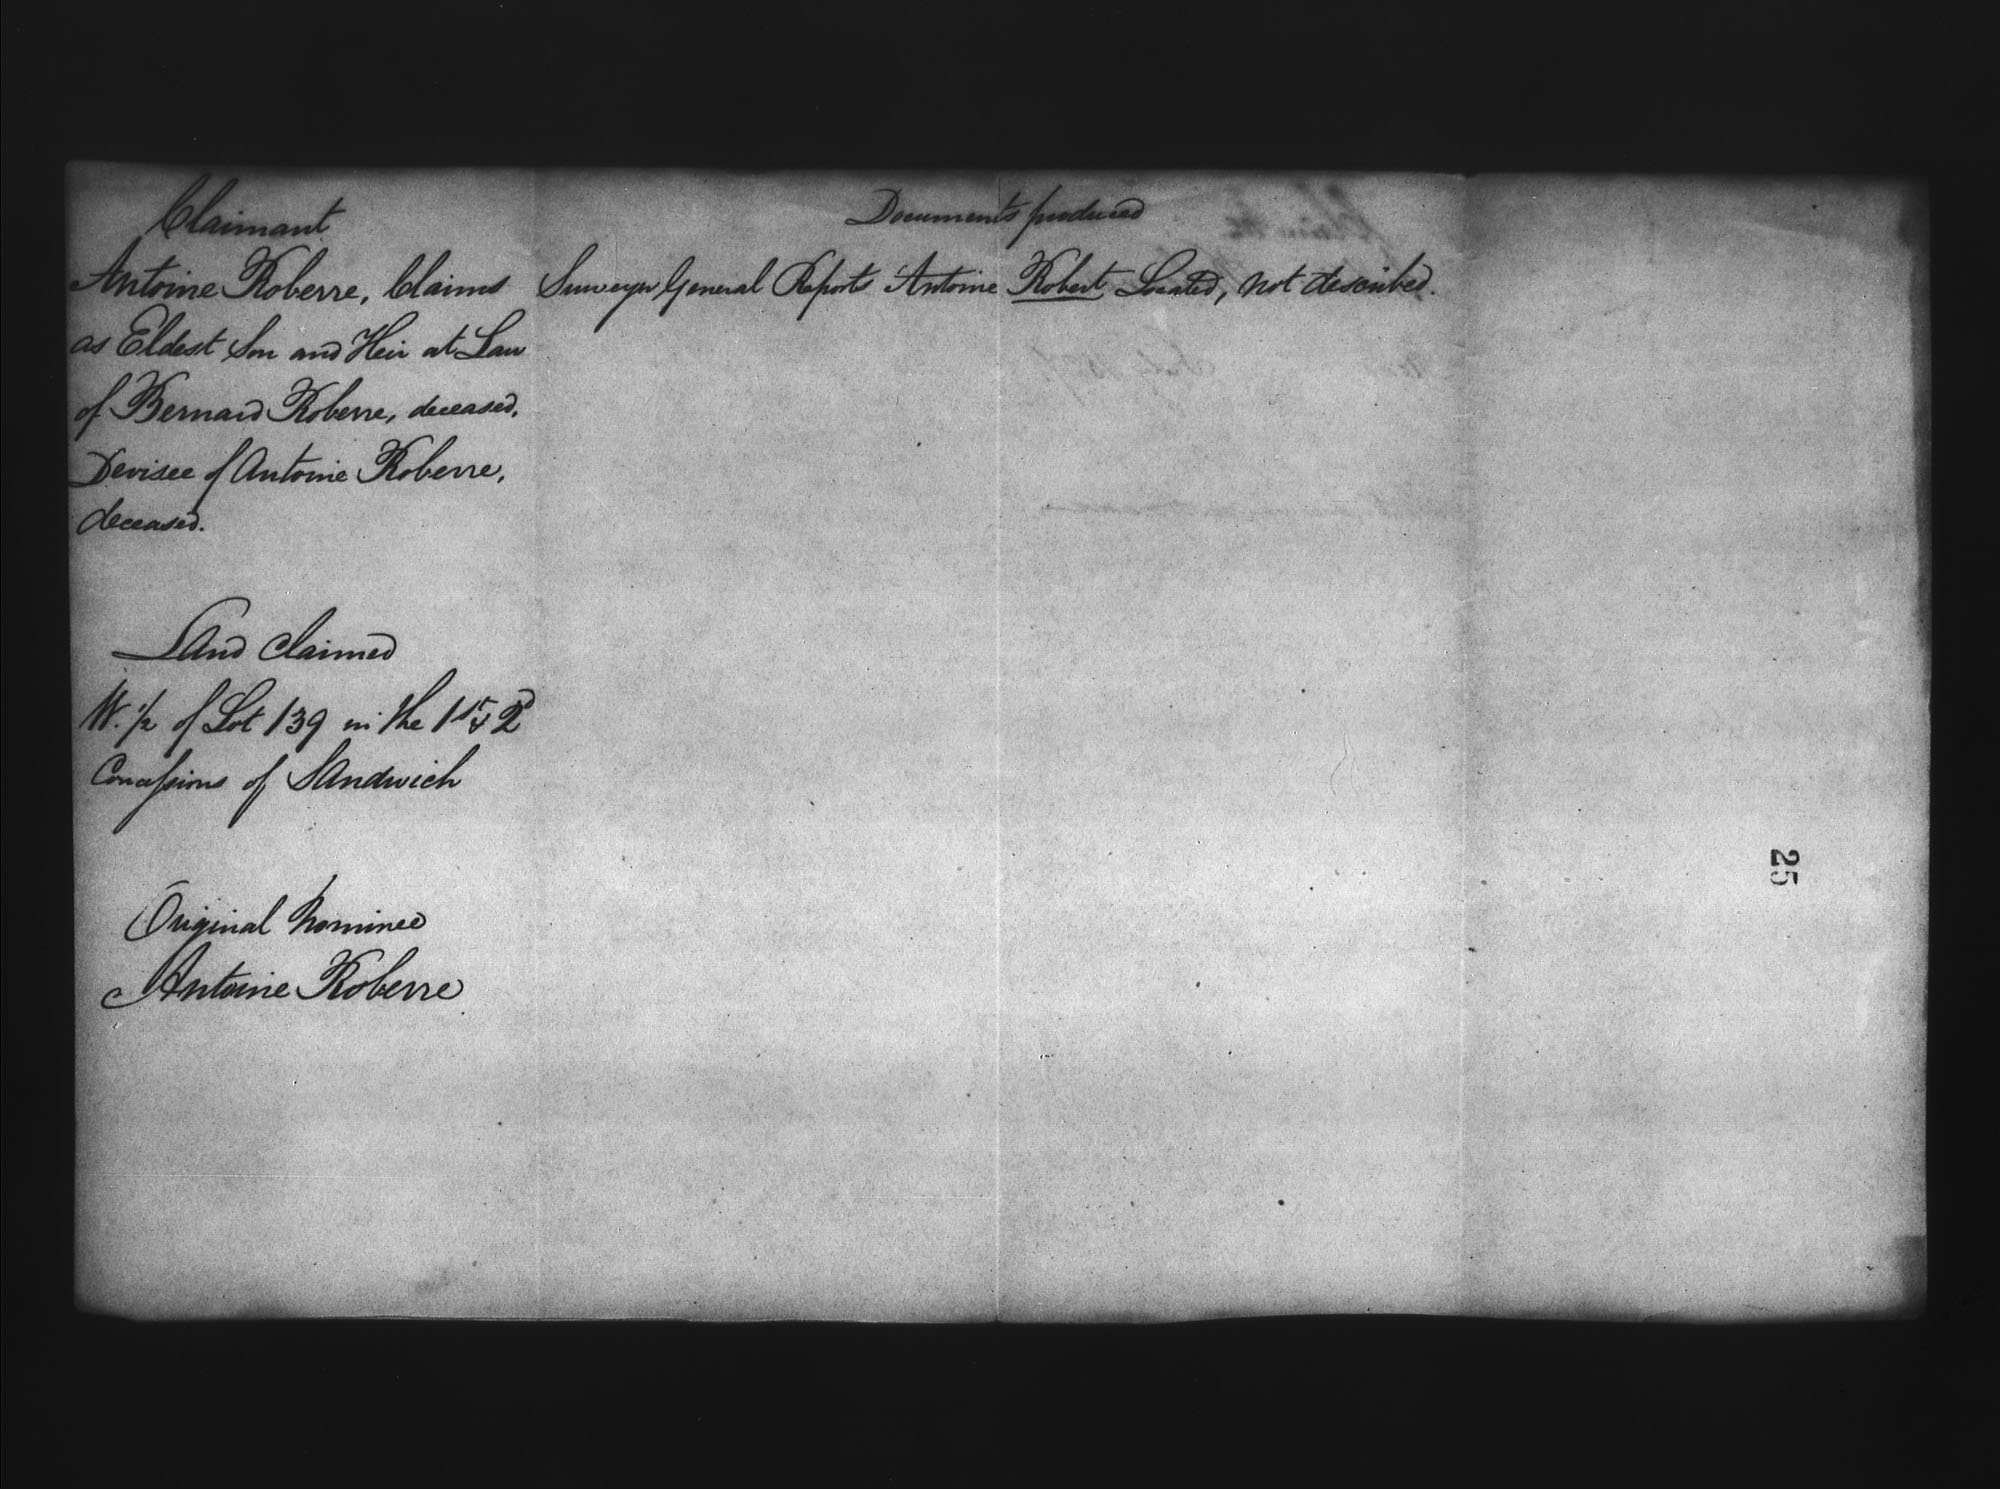 Claimant
Antoine Roberre, Claims
as Eldest Son and Heir at Law
of Bernard Roberre, deceased,
Devisee of Antoine Roberre,
deceased.
Land claimed
W. 1/2 of Lot 139 in the 1st & 2d
Concessions of Sandwich
Original Nominee
Antoine Roberre
Documents produced
Surveyor General Reports Antoine Robert Located, not described.
25